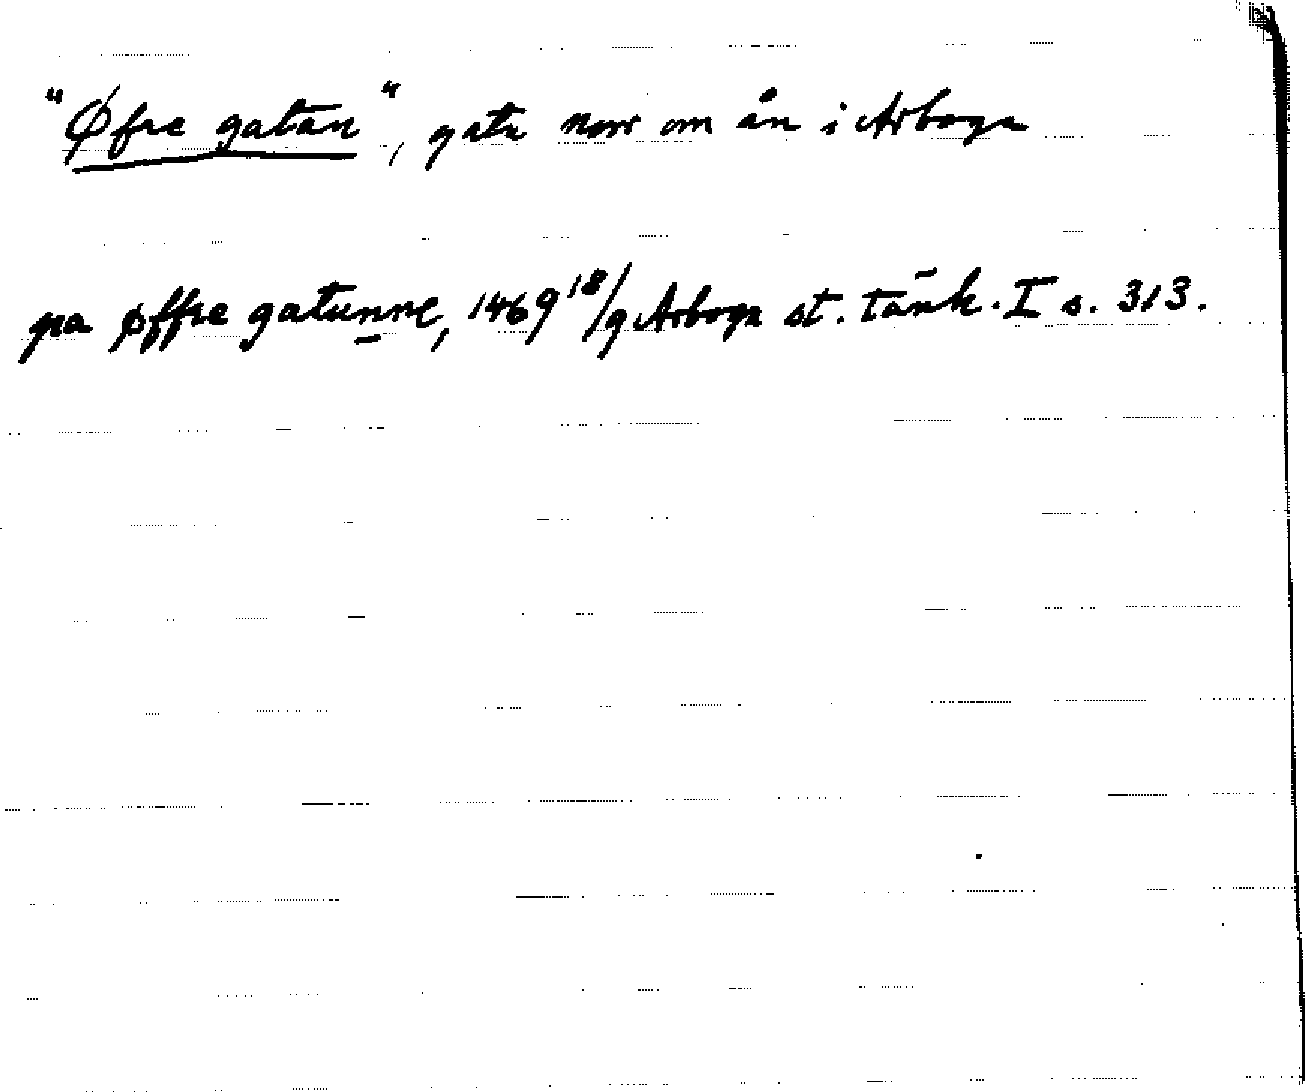 "Øfre gatan", gata norr om ån i Arboga
pa øffre gatunne, 1469 18/9 Arboga st. tänk. I s. 313.